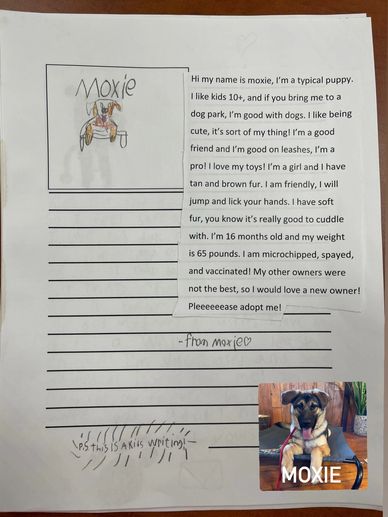 Moxie
Hi my name is moxie, I'm a typical puppy.
I like kids 10+, and if you bring me to a
dog park, I'm good with dogs. I like being
cute, it's sort of my thing! I'm a good
friend and I'm good on leashes, I'm a
pro! I love my toys! I'm a girl and I have
tan and brown fur. I am friendly, I will
jump and lick your hands. I have soft
fur, you know it's really good to cuddle
with. I'm 16 months old and my weight
is 65 pounds. I am microchipped, spayed,
and vaccinated! My other owners were
not the best, so I would love a new owner!
Pleeeeeease adopt me!
-from moxie♡
P.S this IS A Kids writing!
MOXIE